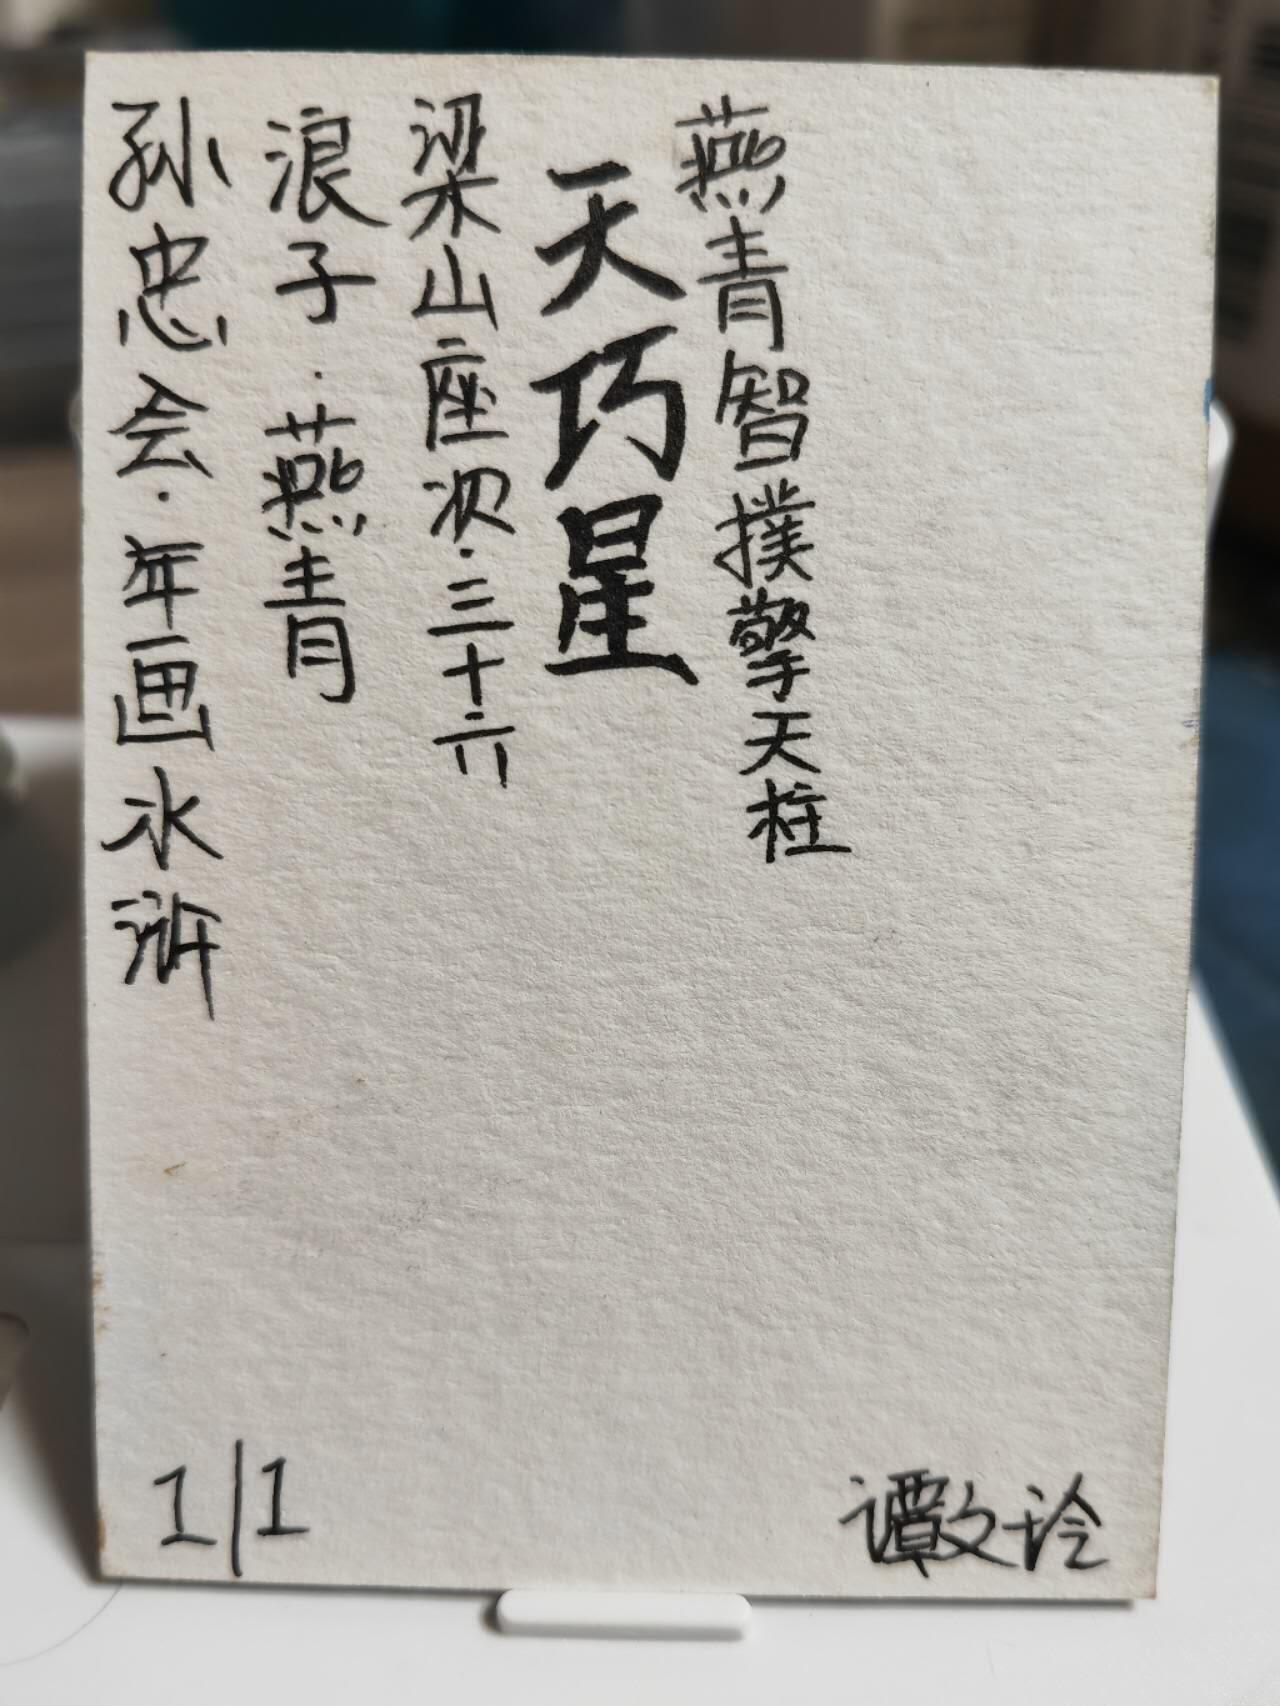 孙忠会·年画水浒
浪子·燕青
梁山座次·三十六
天巧星
燕青智撲擎天柱
1/1
谭文